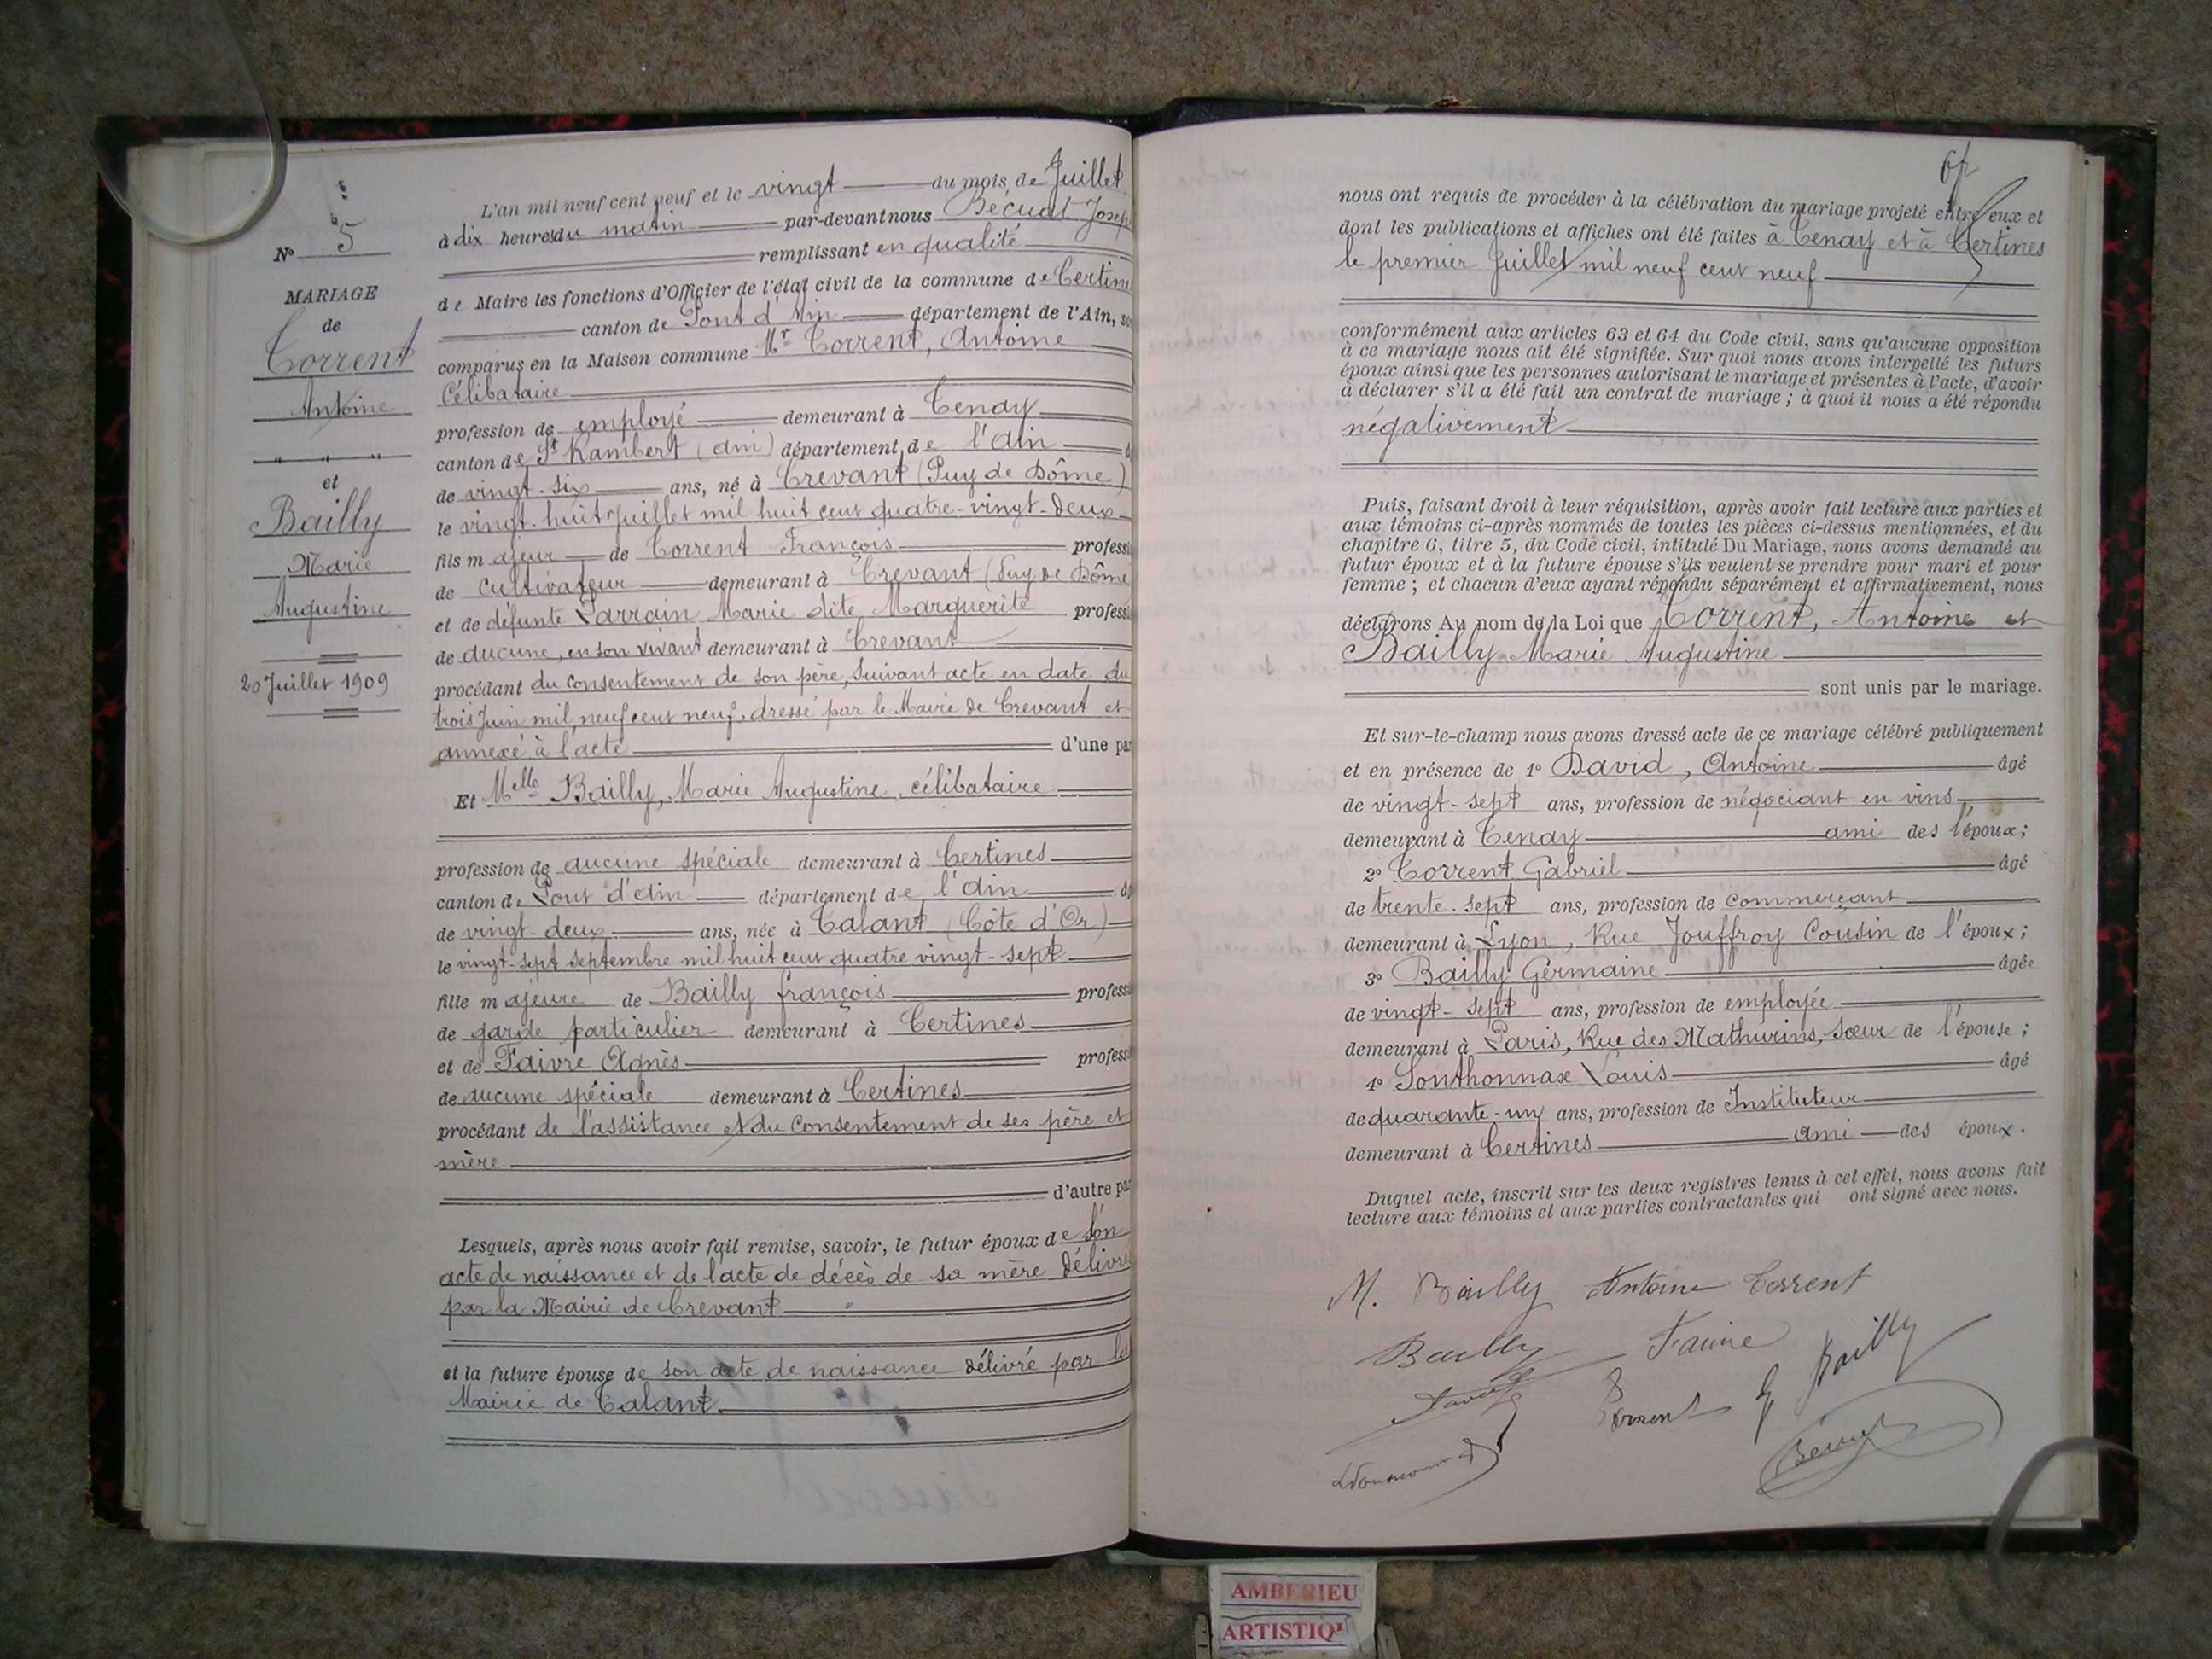 N° 5
MARIAGE
de
Torrent
Antoine
et
Bailly
Marie
Augustine
20 Juillet 1909
L'an mil neuf cent neuf et le vingt du mois de Juillet
à dix heures du matin par-devant nous Bécuat Josep
remplissant en qualité
de Maire les fonctions d'Officier de l'état civil de la commune de Certine
canton de Pont d'Ain département de l'Ain, so
comparus en la Maison commune Mr Torrent, Antoine
Célibataire
profession de employé demeurant à Tenay
canton de St Rambert (ain) département de l'ain
de vingt-six ans, né à Crevant (Puy de Dôme)
le vingt-huit Juillet mil huit cent quatre-vingt-deux
fils majeur de Torrent François professi
de cultivateur demeurant à Crevant (Puy de Dôme
et de défunte Parrain Marie dite Marguerite professi
de aucune, en son vivant demeurant à Crevant
procédant du consentement de son père, suivant acte en date du
trois Juin mil neuf cent neuf, dressé par le Maire de Crevant et
annexé à l'acte d'une par
Et Melle Bailly, Marie Augustine, célibataire
profession de aucune spéciale demeurant à Certines
canton de Pont d'ain département de l'ain âg
de vingt-deux ans, née à Talant (Côte d'Or)
le vingt-sept septembre mil huit cent quatre vingt-sept
fille majeure de Bailly françois professi
de garde particulier demeurant à Certines
et de Faivre Agnès professi
de aucune spéciale demeurant à Certines
procédant de l'assistance et du consentement de ses père et
mère
d'autre par
Lesquels, après nous avoir fait remise, savoir, le futur époux de son
acte de naissance et de l'acte de décès de sa mère délivré
par la Mairie de Crevant
et la future épouse de son acte de naissance délivré par la
Mairie de Talant.
nous ont requis de procéder à la célébration du mariage projeté entre eux et
dont les publications et affiches ont été faites à Tenay et à Certines
le premier Juillet mil neuf cent neuf
conformément aux articles 63 et 64 du Code civil, sans qu'aucune opposition
à ce mariage nous ait été signifiée. Sur quoi nous avons interpellé les futurs
époux ainsi que les personnes autorisant le mariage et présentes à l'acte, d'avoir
à déclarer s'il a été fait un contrat de mariage ; à quoi il nous a été répondu
négativement
Puis, faisant droit à leur réquisition, après avoir fait lecture aux parties et
aux témoins ci-après nommés de toutes les pièces ci-dessus mentionnées, et du
chapitre 6, titre 5, du Code civil, intitulé Du Mariage, nous avons demandé au
futur époux et à la future épouse s'ils veulent se prendre pour mari et pour
femme ; et chacun d'eux ayant répondu séparément et affirmativement, nous
déclarons Au nom de la Loi que Torrent, Antoine et
Bailly Marie Augustine
sont unis par le mariage.
Et sur-le-champ nous avons dressé acte de ce mariage célébré publiquement
et en présence de 1° David, Antoine âgé
de vingt-sept ans, profession de négociant en vins
demeurant à Tenay ami des l'époux ;
2° Torrent Gabriel âgé
de trente-sept ans, profession de commerçant
demeurant à Lyon, Rue Jouffroy Cousin de l'époux ;
3° Bailly Germaine âgée
de vingt-sept ans, profession de employée
demeurant à Paris, Rue des Mathurins, sœur de l'épouse ;
4° Sonthonnax Louis âgé
de quarante-un ans, profession de Instituteur
demeurant à Certines ami des époux.
Duquel acte, inscrit sur les deux registres tenus à cet effet, nous avons fait
lecture aux témoins et aux parties contractantes qui ont signé avec nous.
M. Bailly Antoine Torrent
Bailly Faivre
G Bailly
David Torrent
AMBERIEU
ARTISTIQ